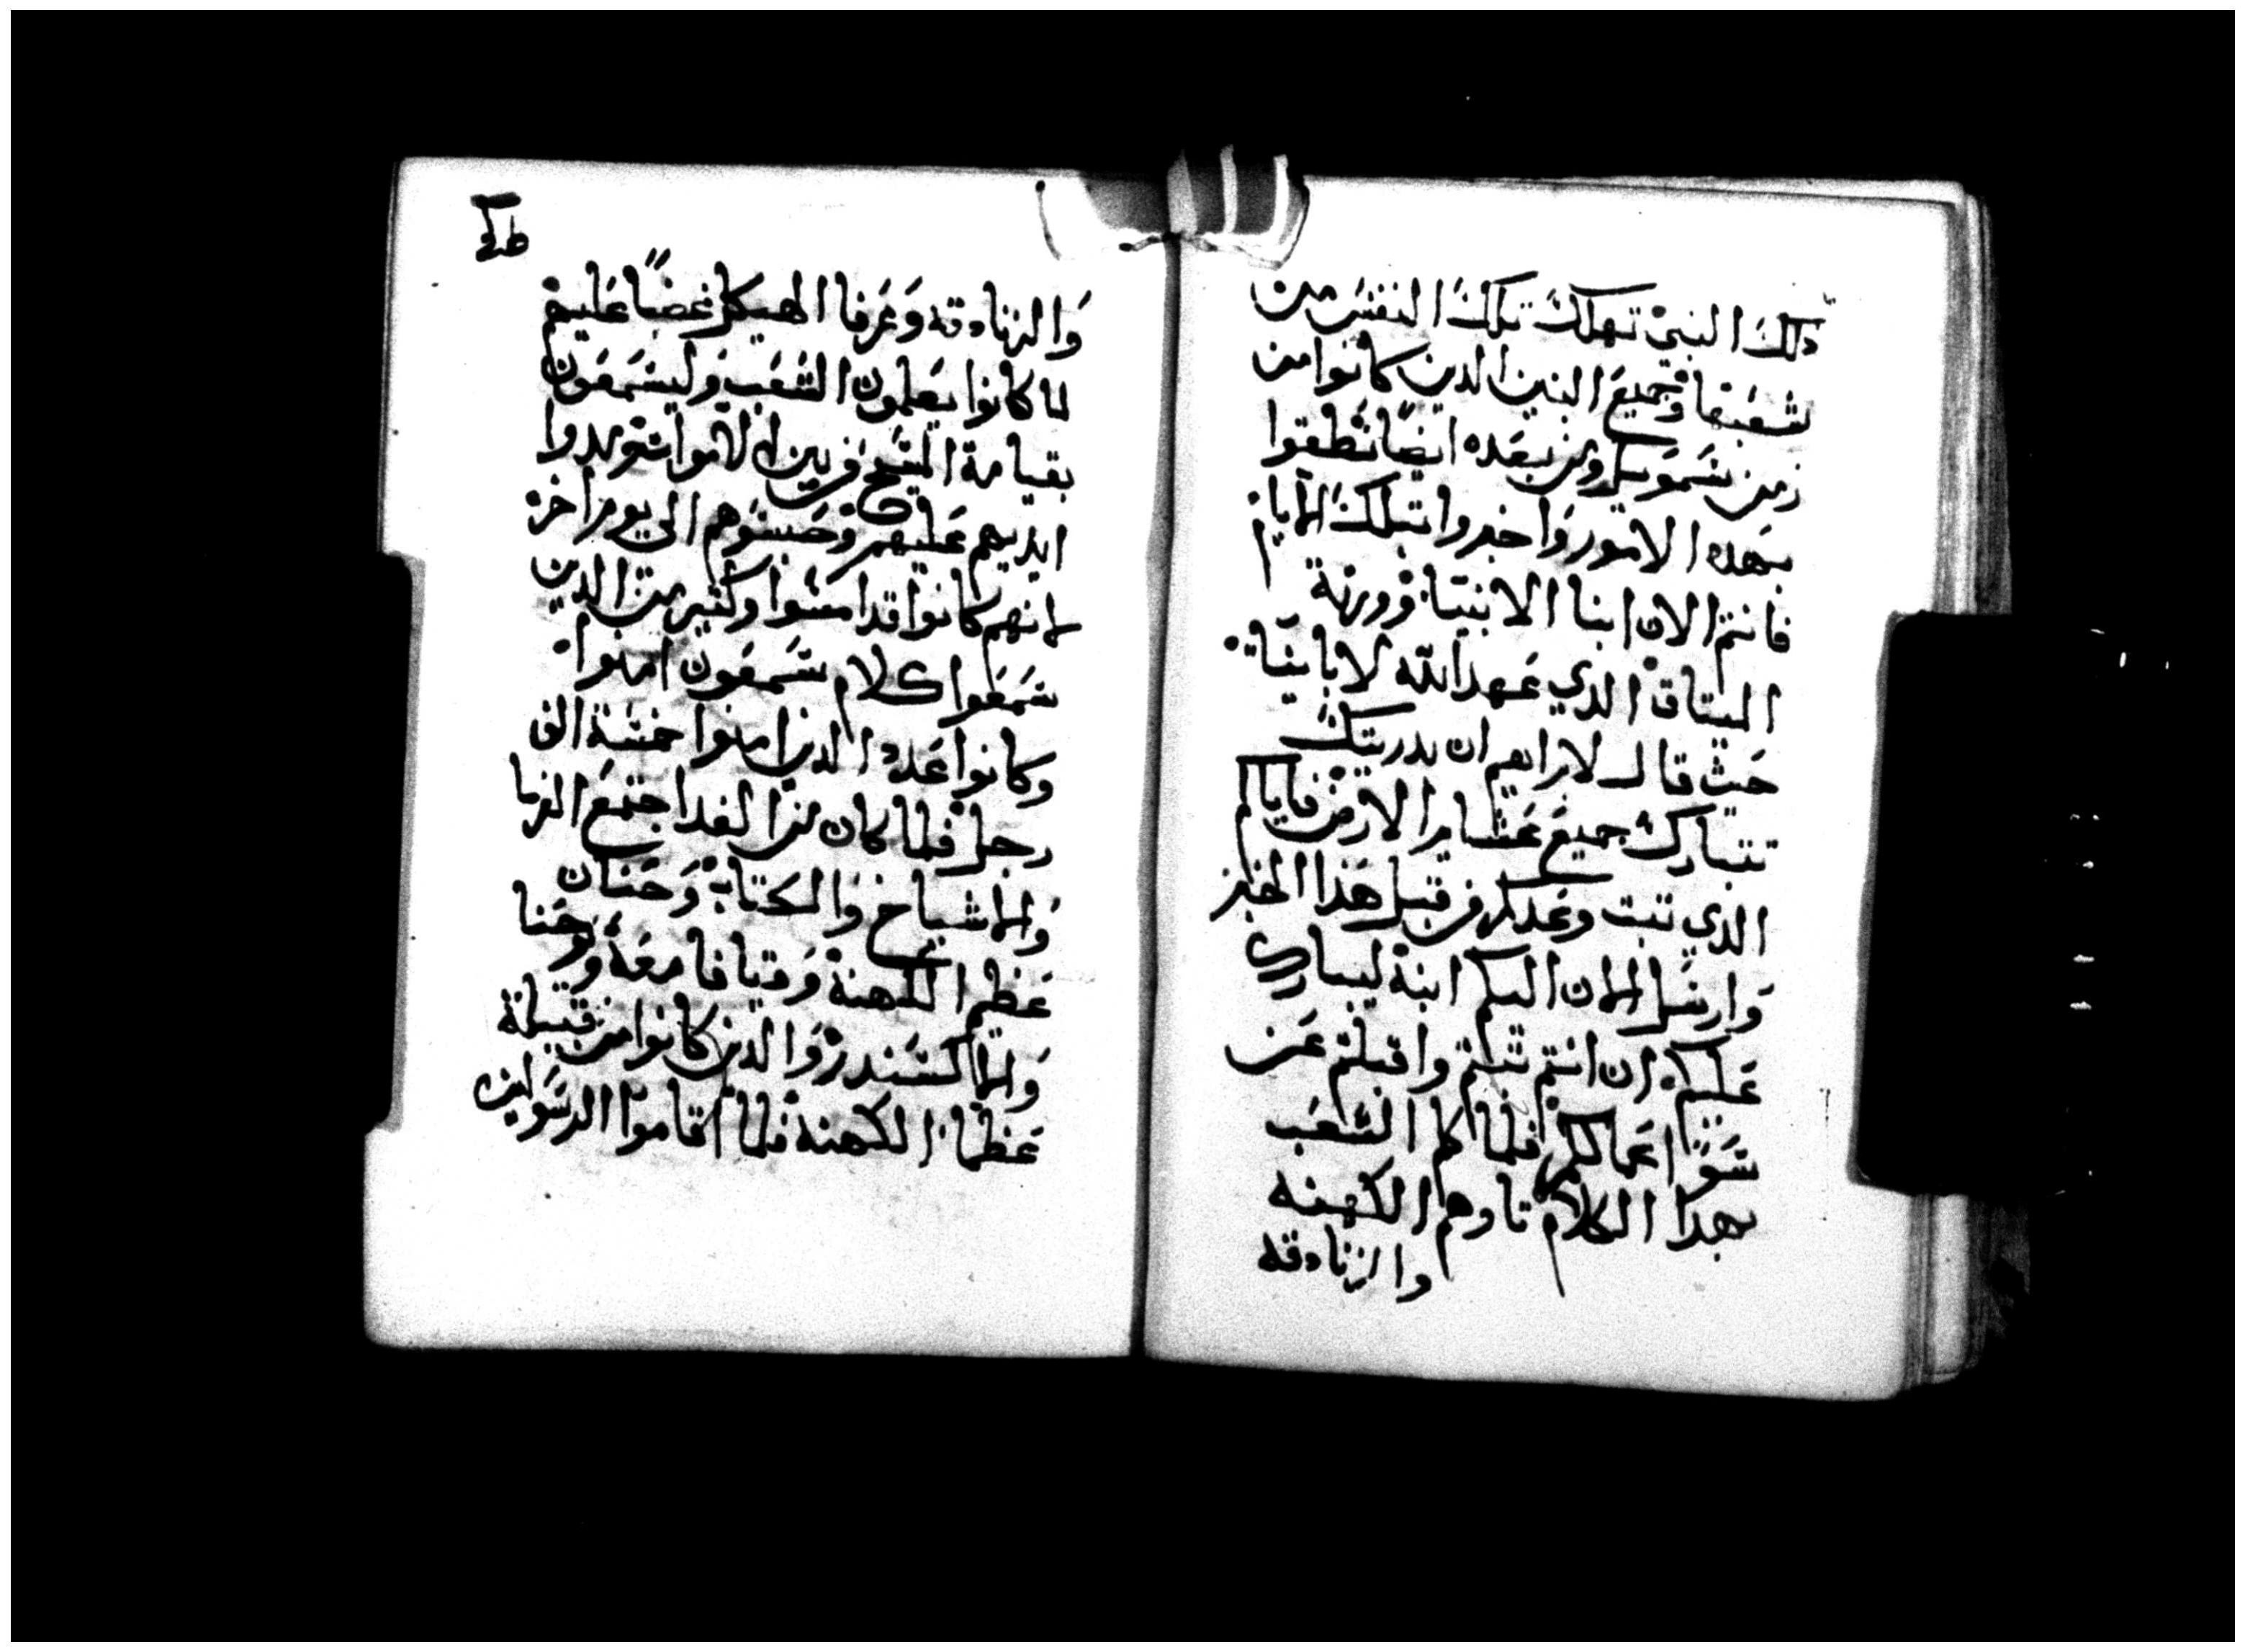 ذلك النبي تهلك تلك النفس من
شعبها وجميع النبين الدين كانوا من
زمن شموييل ومن بعده ايضًا نطقوا
بهده الامور واخبروا بتلك الايام
فانتم الان ابنا الانبيا وورثة
الميتاق الدي عهد الله لابايناء
حيث قال لابراهيم ان بدريتك
تتبارك جميع عشاير الارض فاياكم
الذي تبت وعدكم من قبل هذا الخبز
وارسل الان اليكم ابنه ليبارك
عليكم ان انتم تبتم واقبلتم عن
سوّ اعمالكم فلما كلم الشعب
بهدا الكلام تاوهم الكهنه
والزنادقه
والزنادقه وعرفا الهيكل غضبًا عليهم
لما كانوا يعلمون الشعب وليسمعون
بقيامة المسيح من بين الاموات ومدوا
ايديهم عليهم وحبسوهم الى يوم اخر
لانهم كانوا قد امسوا وكثير من الدين
سمعوا كلام سمعون امنوا
وكانوا عدد الدين امنوا خمسة الف
رجل فلما كان من الغد اجتمع العرفا
والاشياخ والكتاب وحنان
عظيم الكهنة وقيافا معه ويوحنا
والاكسندر والدين كانوا من قبيلة
عظما الكهنة فلما اقاموا الرسولين